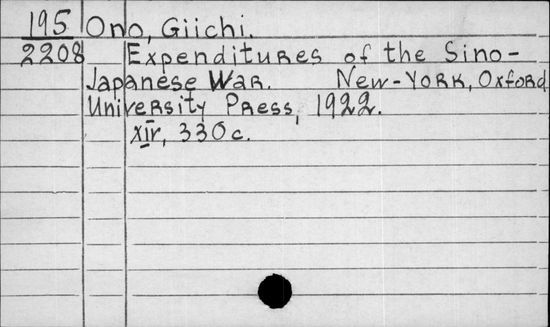 195 Ono, Giichi.
2208 Expenditures of the Sino-
Japanese War. New-York, Oxford
University Press, 1922.
XIV, 330 c.